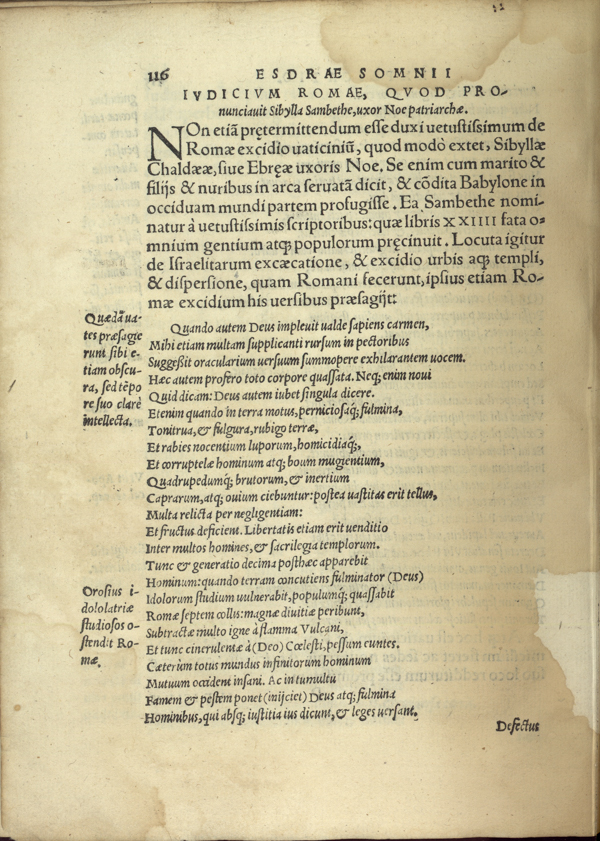 116
ESDRAE SOMNII
IVDICIVM ROMAE, QVOD PRO-
nunciauit Sibylla Sambethe, uxor Noe patriarchæ.
NOn etiã prętermittendum esse duxi uetustissimum de
Romæ excidio uaticiniũ, quod modò extet, Sibyllæ
Chaldææ, siue Ebręæ uxoris Noe. Se enim cum marito &
filijs & nuribus in arca seruatã dicit, & cõdita Babylone in
occiduam mundi partem profugisse. Ea Sambethe nomi-
natur à uetustissimis scriptoribus: quæ libris XXIIII fata o-
mnium gentium atq; populorum pręcinuit. Locuta igitur
de Israelitarum excæcatione, & excidio urbis aq; templi,
& dispersione, quam Romani fecerunt, ipsius etiam Ro-
mæ excidium his uersibus præsagijt:
Quædã ua-
tes præsagie
runt sibi e-
tiam obscu-
ra, sed tẽpo
re suo clarè
intellecta.
Quando autem Deus impleuit ualde sapiens carmen,
Mihi etiam multam supplicanti rursum in pectoribus
Suggeßit oracularium uersuum summopere exhilarantem uocem.
Hæc autem profero toto corpore quassata. Neq; enim noui
Quid dicam: Deus autem iubet singula dicere.
Etenim quando in terra motus, perniciosaq; fulmina,
Tonitrua, & fulgura, rubigo terræ,
Et rabies nocentium luporum, homicidiaq;,
Et corruptelæ hominum atq; boum mugientium,
Quadrupedumq; brutorum, & inertium
Caprarum, atq; ouium ciebuntur: postea uastitas erit tellus,
Multa relicta per negligentiam:
Et fructus deficient. Libertatis etiam erit uenditio
Inter multos homines, & sacrilegia templorum.
Tunc & generatio decima posthæc apparebit
Hominum: quando terram concutiens fulminator (Deus)
Orosius i-
dololatriæ
studiosos o-
stendit Ro-
mæ.
Idolorum studium uulnerabit, populumq; quassabit
Romæ septem collis: magnæ diuitiæ peribunt,
Subtractæ multo igne à flamma Vulcani,
Et tunc cinerulentæ à (Deo) Cœlesti, pessum euntes.
Cæterùm totus mundus infinitorum hominum
Mutuum occident insani. Ac in tumultu
Famem & pestem ponet (inijciet) Deus atq; fulmina
Hominibus, qui absq; iustitia ius dicunt, & leges uersant.
Defectus